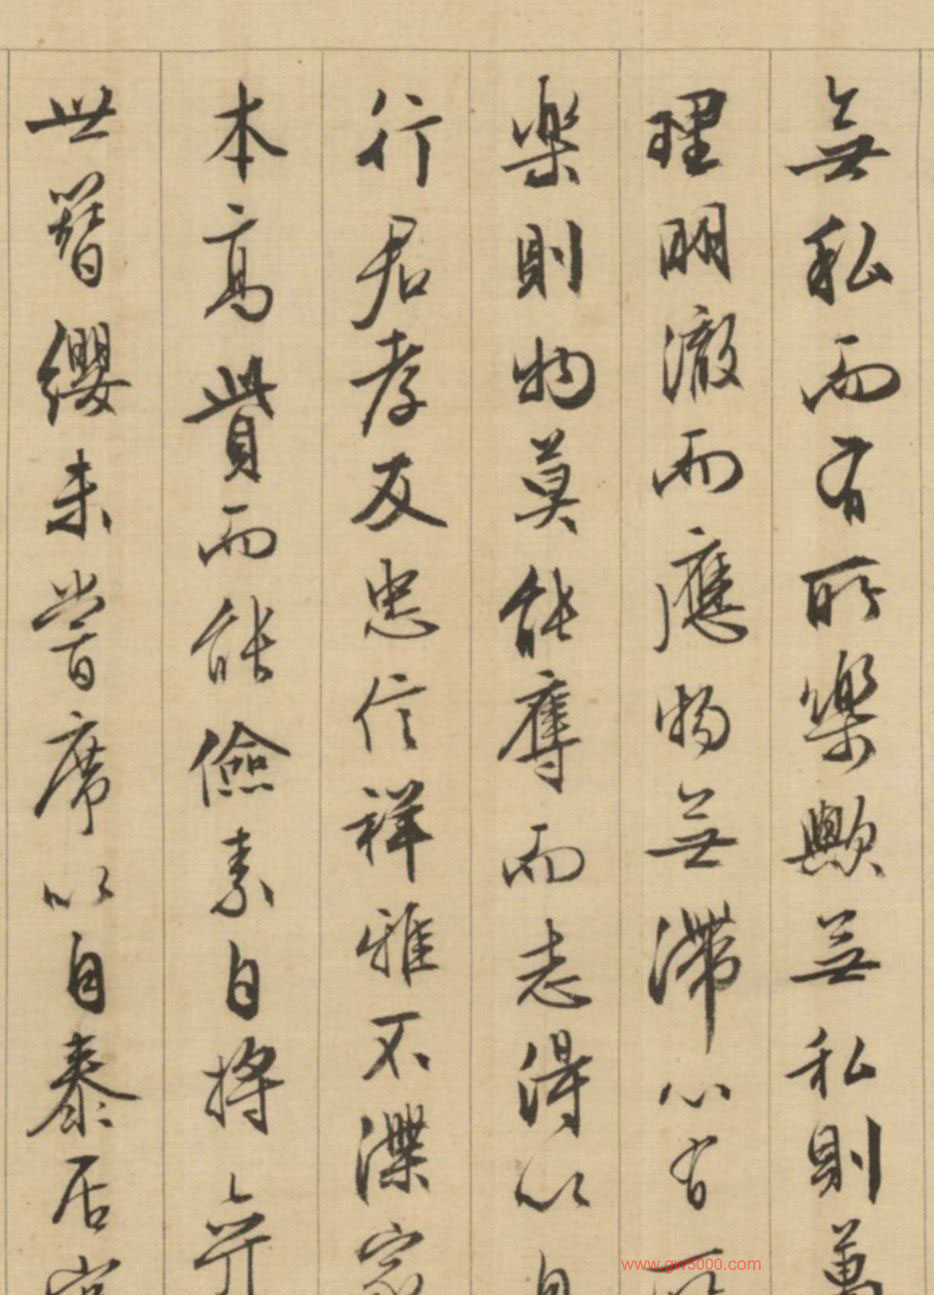 無私而有所樂歟無私則萬
理明澈而應物無滯心有所
樂則物莫能奪而志得以自
行君孝友忠信祥雅不渫家
本高貲而能儉素自將弈
世簪纓未嘗席以自泰居家
www.gw5000.com